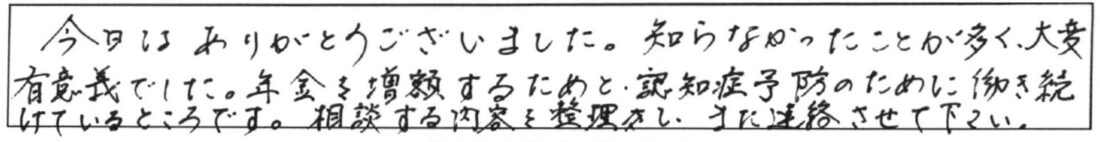 今日はありがとうございました。知らなかったことが多く、大変
有意義でした。年金を増額するためと、認知症予防のために働き続
けているところです。相談する内容を整理きし、また連絡させて下さい。